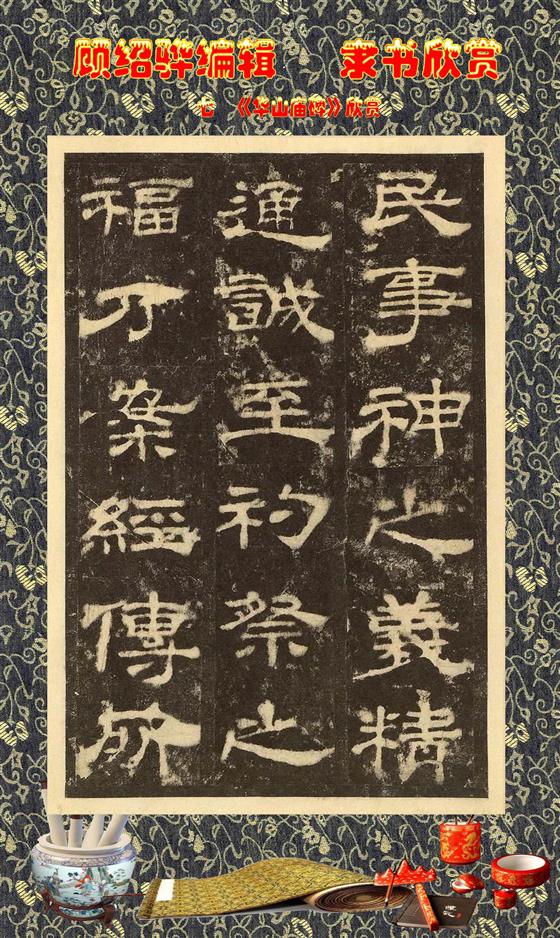 顾绍骅编辑 隶书欣赏
《华山庙碑》欣赏
民事神之義精
通誠至礿祭之
福乃案經傳所